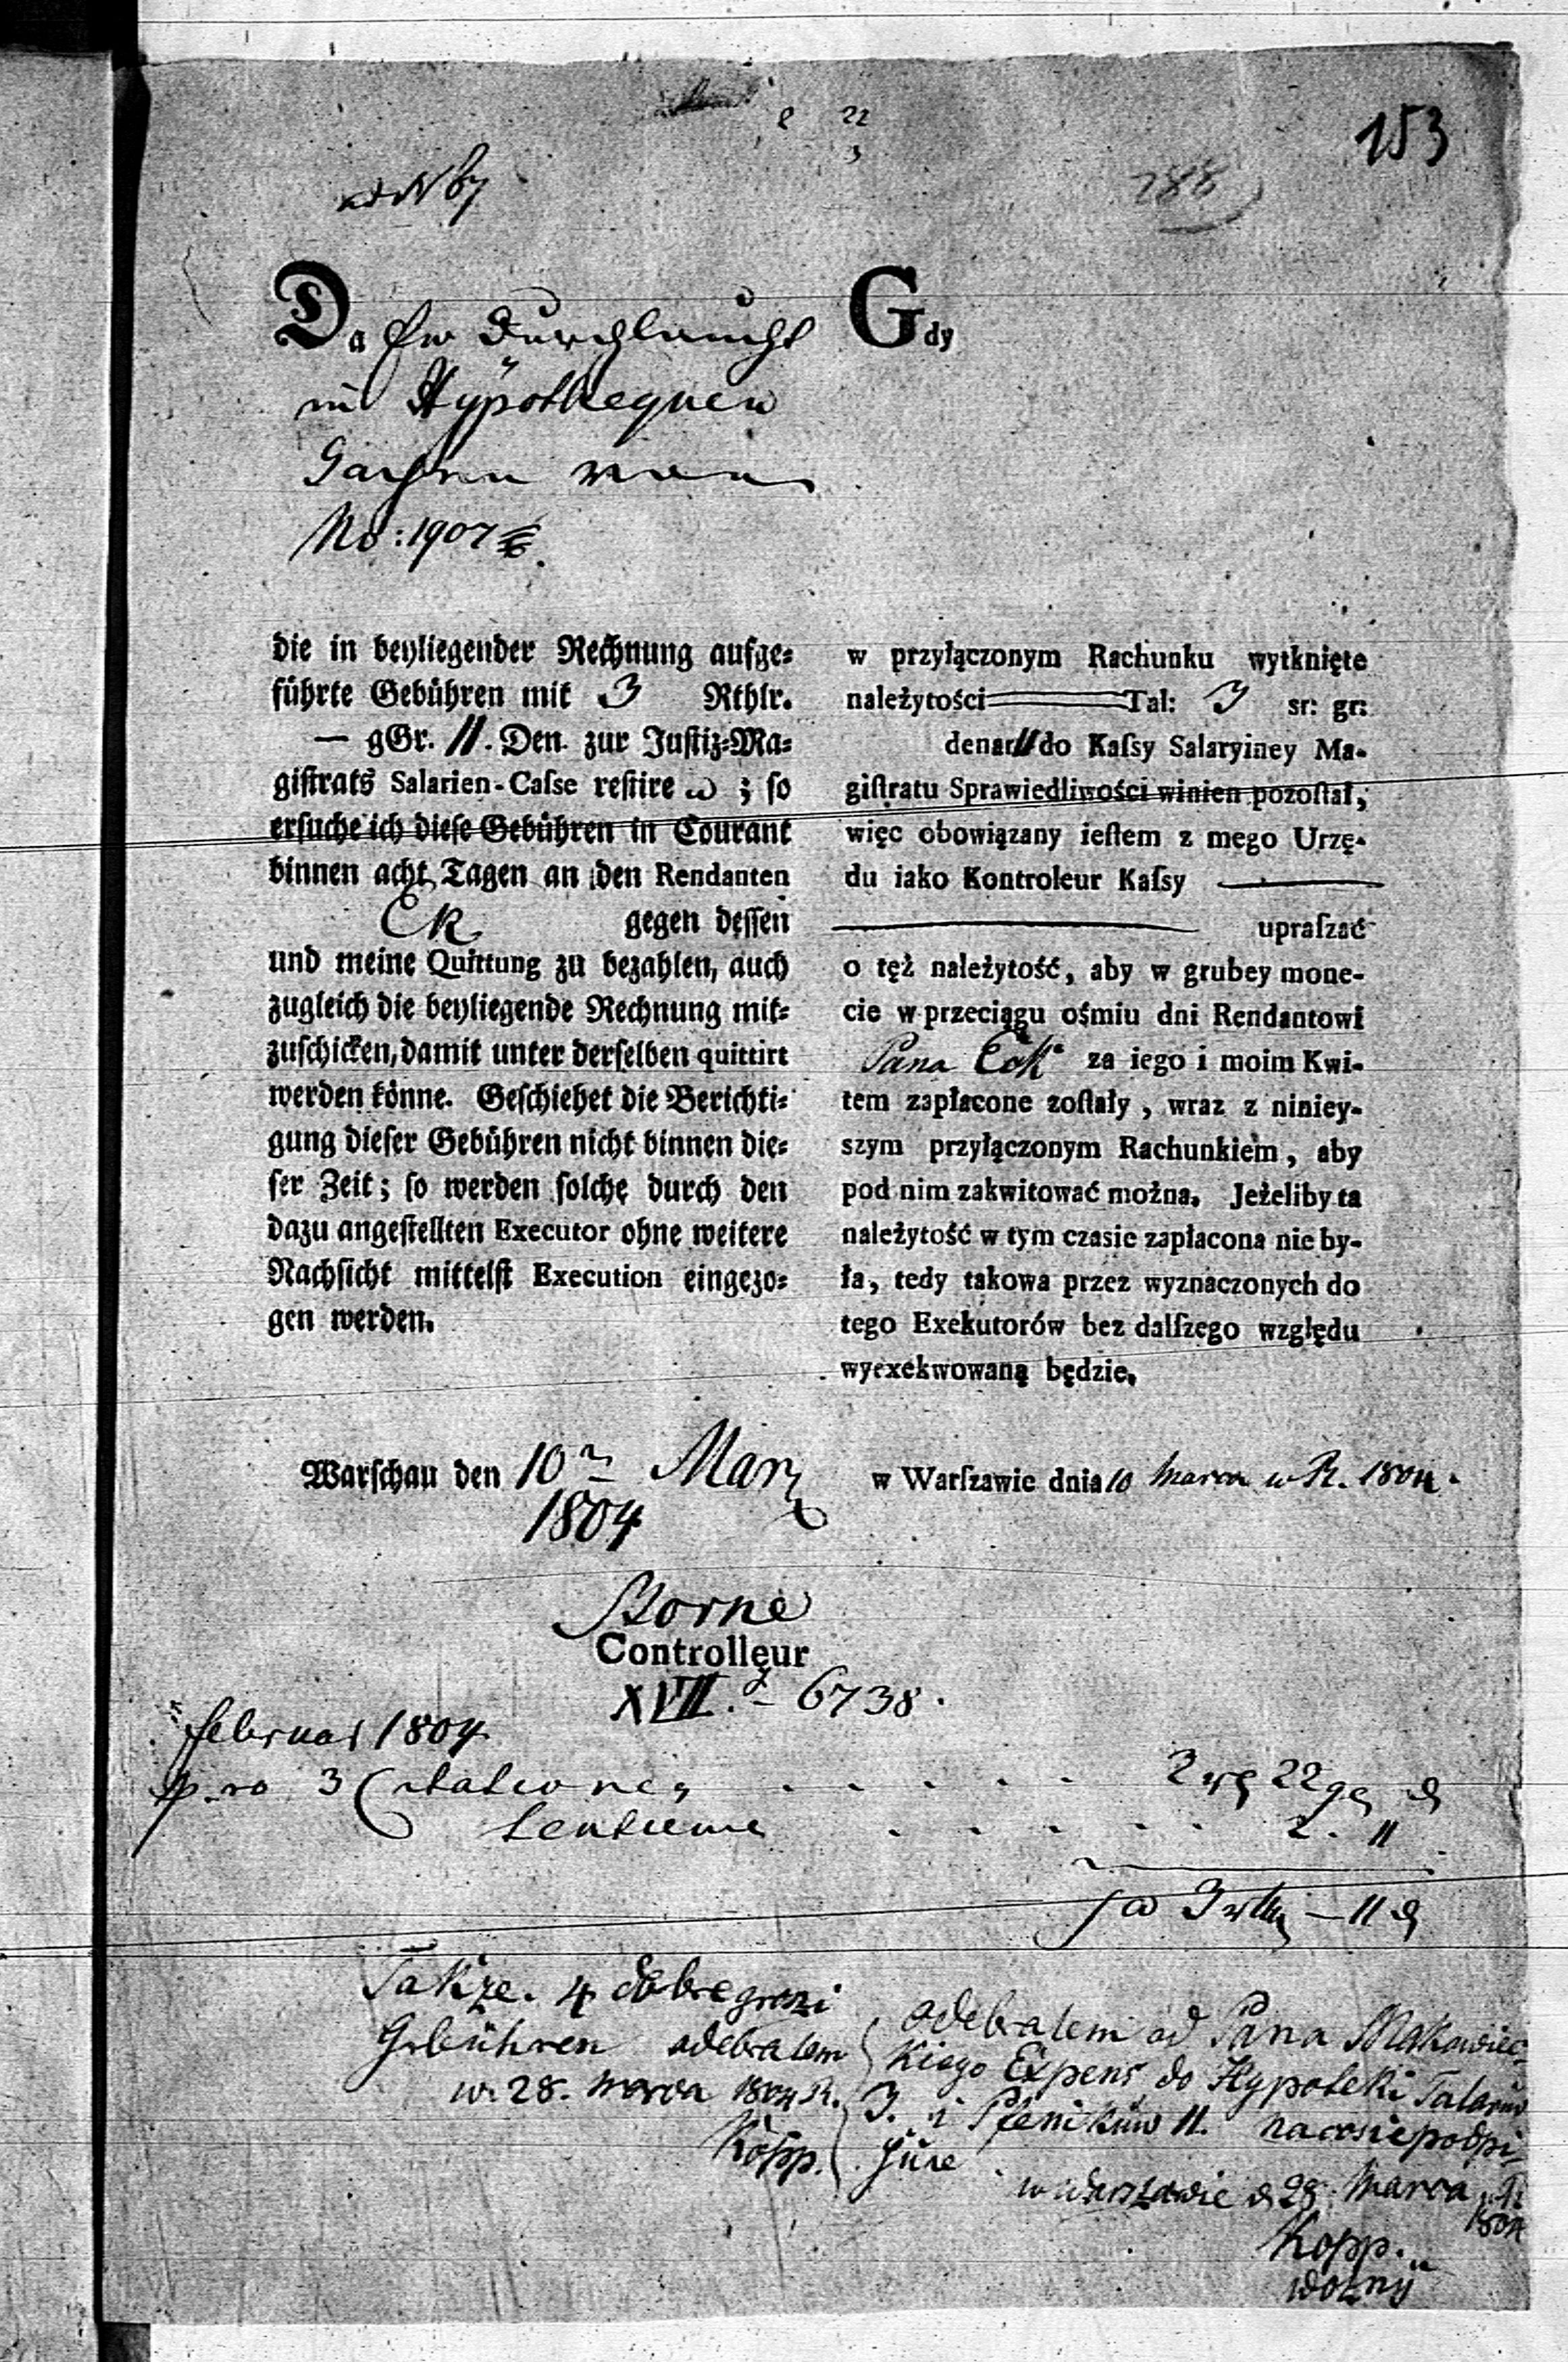 153
288
ad N 67
Da Ew Durchlaucht
in Hypothequen
Sachen
No: 1907
die in beyliegender Rechnung aufge⸗
führte Gebühren mit 3 Rthlr.
— gGr. 11. Den. zur Justiz⸗Ma⸗
gistrats Salarien-Casse restire ; so
ersuche ich diese Gebühren in Courant
binnen acht Tagen an den Rendanten
Ek gegen dessen
und meine Quittung zu bezahlen, auch
zugleich die beyliegende Rechnung mit⸗
zuschicken, damit unter derselben quittirt
werden könne. Geschiehet die Berichti⸗
gung dieser Gebühren nicht binnen die⸗
ser Zeit; so werden solche durch den
dazu angestellten Executor ohne weitere
Nachsicht mittelst Execution eingezo⸗
gen werden.
Warschau den 10n Marz
1804
Gdy
w przyłączonym Rachunku wytknięte
należytości Tal: 3 sr: gr:
denar 11 do Kaſsy Salaryiney Ma-
giſtratu Sprawiedliwości winien pozoſtał,
więc obowiązany ieſtem z mego Urzę-
du iako Kontroleur Kaſsy
upraſzać
o też należytość, aby w grubey mone-
cie w przeciągu ośmiu dni Rendantowi
Pana Eck za iego i moim Kwi-
tem zapłacone zoſtały, wraz z niniey-
szym przyłączonym Rachunkiem, aby
pod nim zakwitować można. Jeżeliby ta
należytość w tym czasie zapłacona nie by-
ła, tedy takowa przez wyznaczonych do
tego Exekutorów bez dalſzego względu
wyexekwowaną będzie.
w Warſzawie dnia 10 Marca w R. 1804.
Storne
Controlleur
XVII. 6738.
februar 1804
pro 3 Citationes . . . . . 2 22
. . . . . 2. 11
3 — 11
Takze. 4 dobre groszi
Gebühren odebralem
w. 28. marca 1804 R.
Kopp.
odebralem od Pana Makowiec-
kiego Expens do Hypoteki Talarow
3. i Fenikuw 11. na co sie podpi-
suie
w Warszawie d 28. Marca
1804
Kopp.
Wozny